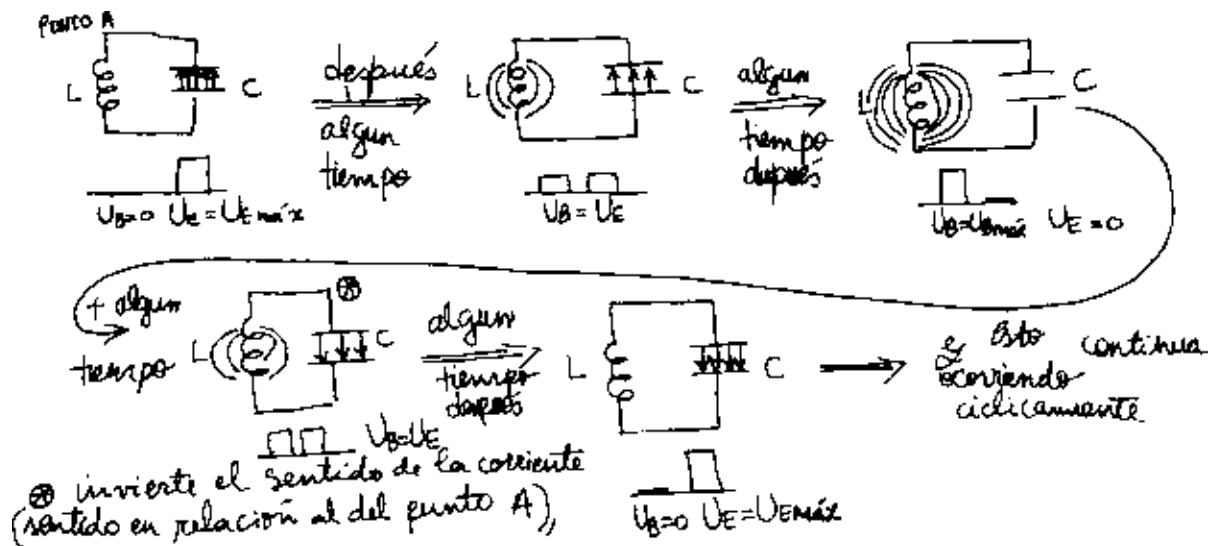 PUNTO A
L
C
después
algun
tiempo
L
C
algun
tiempo
después
L
C
U_B=0 U_E=U_E máx
U_B=U_E
U_B=U_Bmáx U_E=0
+ algun
tiempo
L
C
⊛
U_B=U_E
algun
tiempo
después
L
C
U_B=0 U_E=U_Emáx
y esto continua
ocorriendo
ciclicamiante
⊛ invierte el sentido de la corriente
(sentido en relación al del punto A)